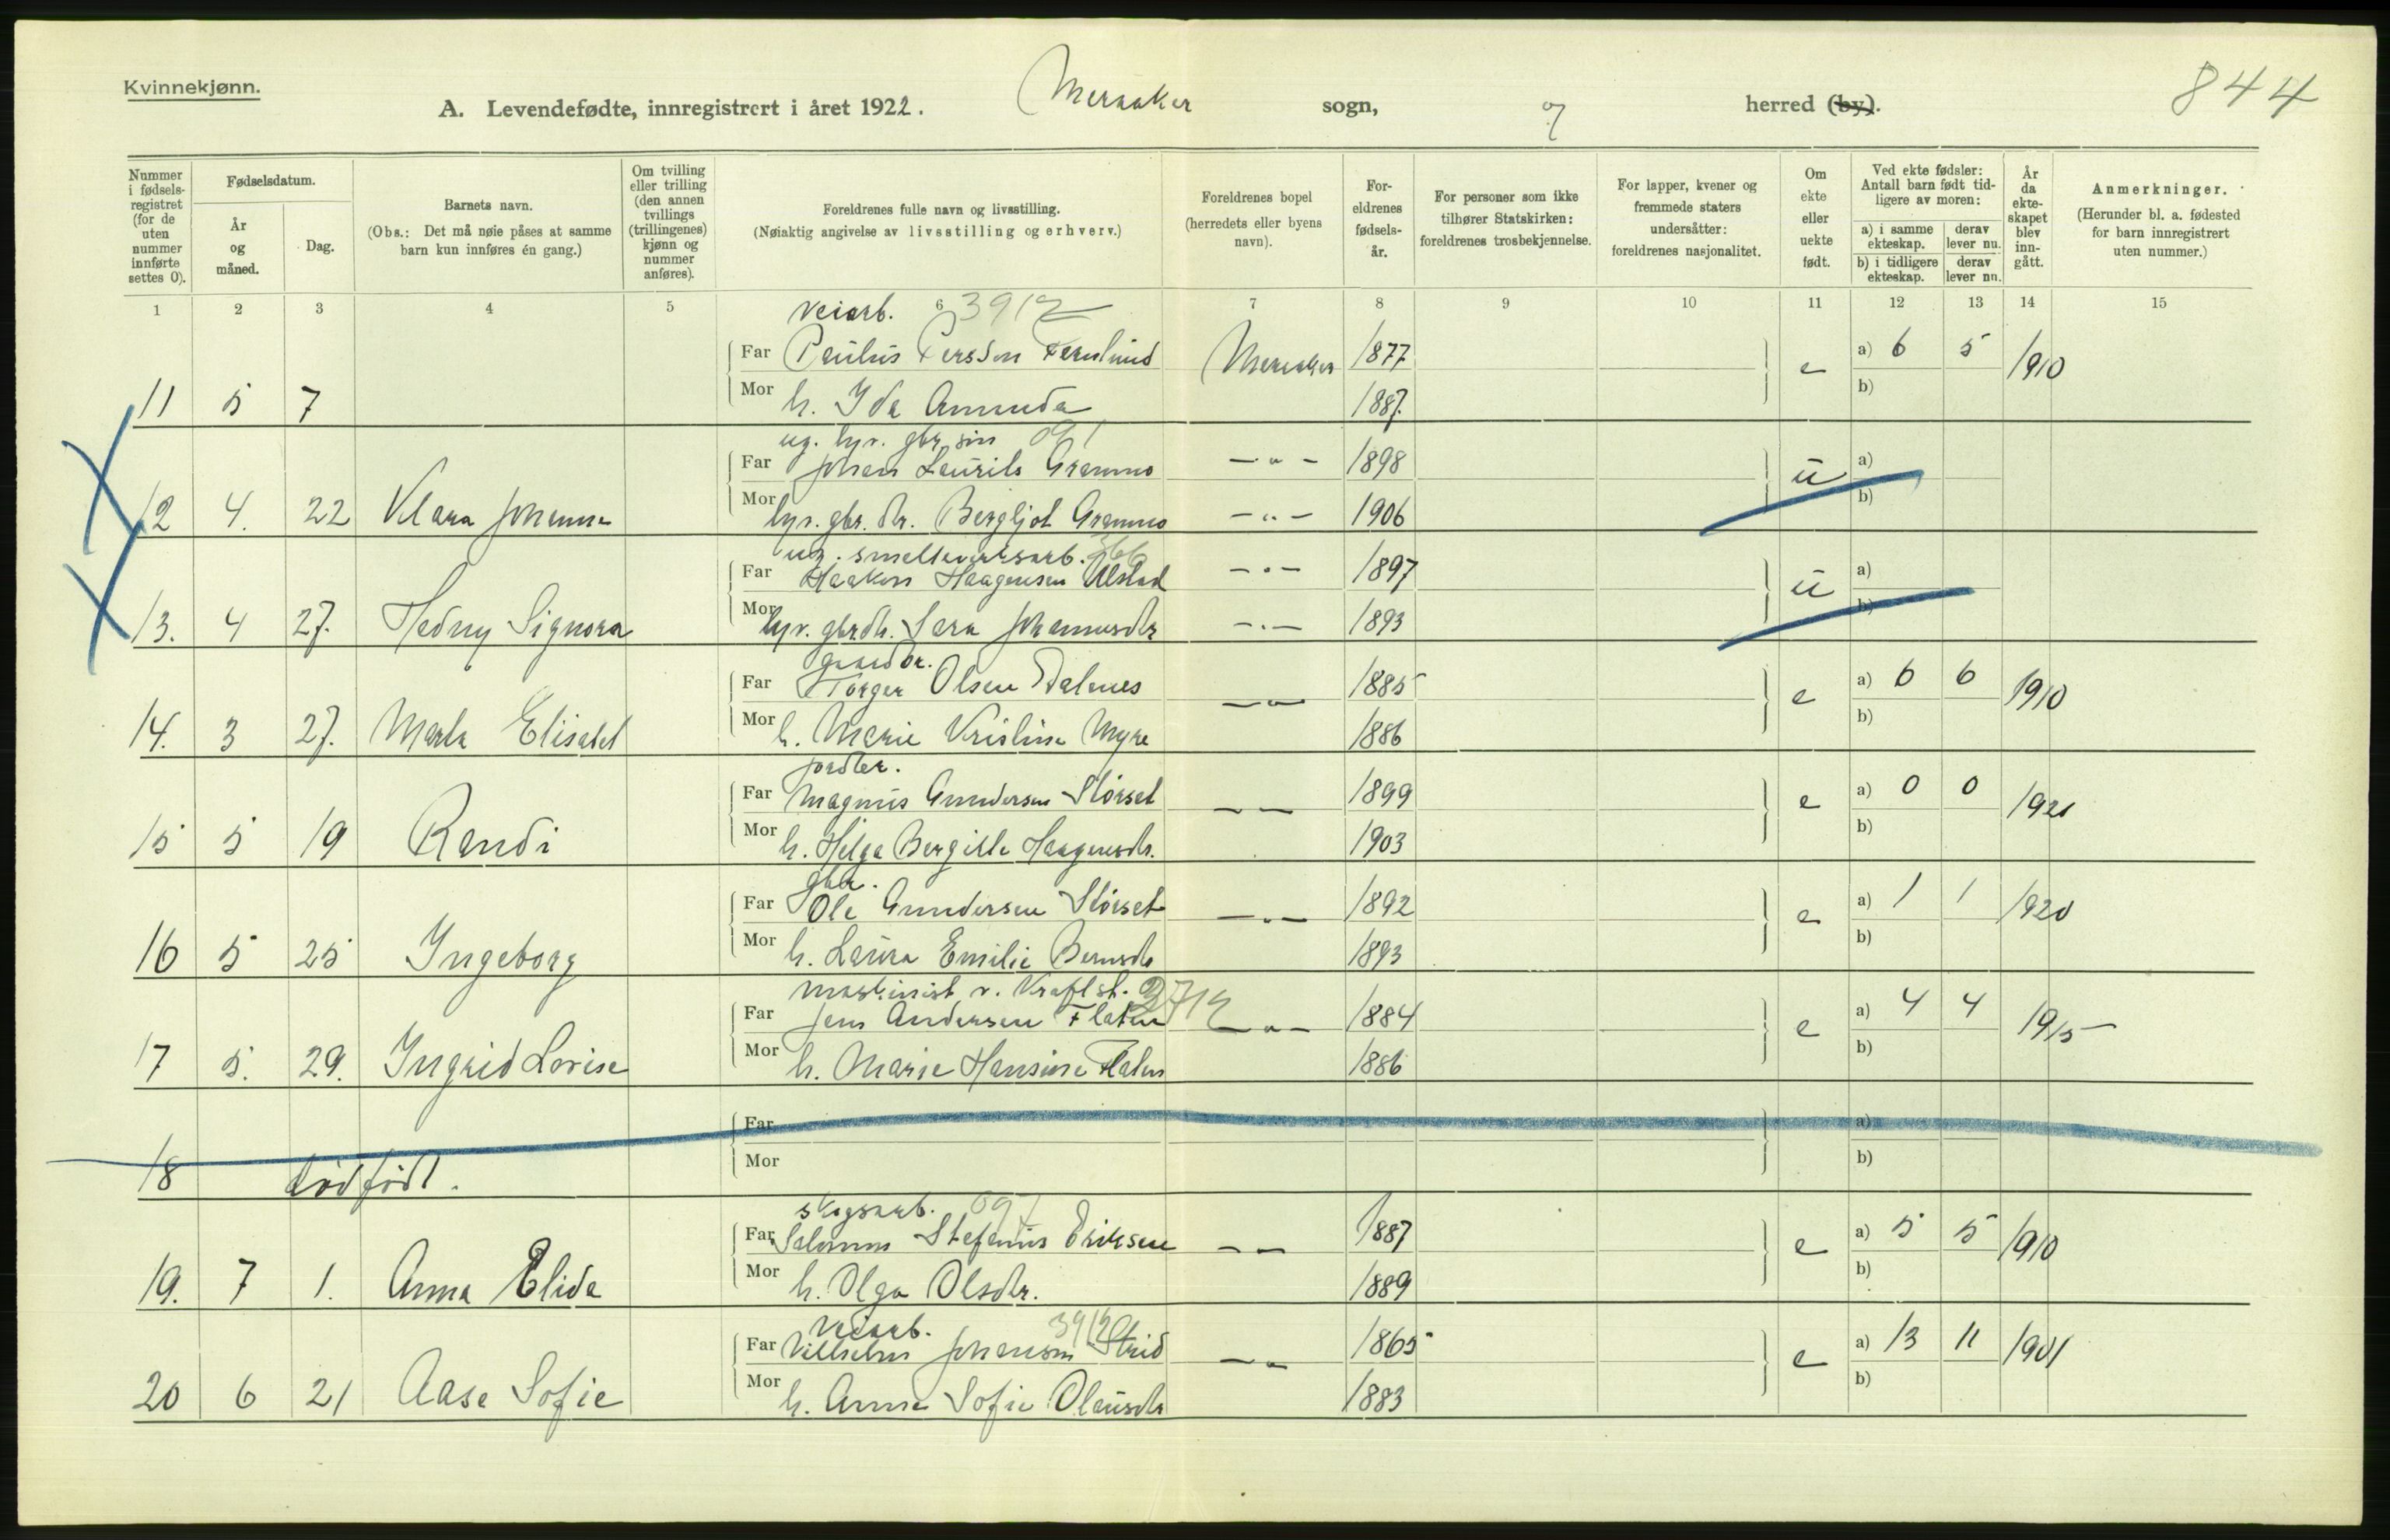 Kvinnekjønn.
844
A. Levendefødte, innregistrert i året 1922. Meraaker sogn, og herred (by).
Nummer i fødsels-registret (for de uten nummer innførte settes 0).
Fødselsdatum.
År og måned.
Dag.
Barnets navn.
(Obs.: Det må nøie påses at samme barn kun innføres én gang.)
Om tvilling eller trilling (den annen tvillings (trillingenes) kjønn og nummer anføres).
Foreldrenes fulle navn og livsstilling.
(Nøiaktig angivelse av livsstilling og erhverv.)
Foreldrenes bopel
(herredets eller byens navn).
For-eldrenes fødsels-år.
For personer som ikke tilhører Statskirken: foreldrenes trosbekjennelse.
For lapper, kvener og fremmede staters undersåtter: foreldrenes nasjonalitet.
Om ekte eller uekte født.
Ved ekte fødsler: Antall barn født tid-ligere av moren:
a) i samme ekteskap.
derav lever nu.
b) i tidligere ekteskap.
derav lever nu.
År da ekte-skapet blev inn-gått.
Anmerkninger.
(Herunder bl. a. fødested for barn innregistrert uten nummer.)
1 2 3 4 5 6 7 8 9 10 11 12 13 14 15
veiarb. 3912
Far Paulus Persson Fernlund Meraaker 1877 e a) 6 5 1910
11 5 7 Mor h. Ida Amanda 1887. b)
ug. hjv. gbr. søn 091
Far Johan Laurits Grammo — „ — 1898 u a)
12 4. 22 Klara Johanna Mor hjv. gbr. dtr. Bergljot Grammo — „ — 1906 b)
ug. smelteverksarb. 366
Far Haakon Haagensen Ulstad — „ — 1897 u a)
13. 4 27. Hedny Signora Mor hjv. gbr.dtr. Sara Johannesdtr — „ — 1893 b)
gaardbr.
Far Torger Olsen Dalenes — „ — 1885 e a) 6 6 1910
14. 3 27. Marta Elisabet Mor h. Marie Kristine Myre 1886 b)
jordbr.
Far Magnus Gundersen Stórset — — 1899 e a) 0 0 1921
15 5 19 Randi Mor h. Helga Bergitte Haagensdtr. 1903 b)
gbr.
Far Ole Gundersen Stórset — „ — 1892 e a) 1 1 1920
16 5 25 Ingeborg Mor h. Laura Emilie Berntsdtr 1893 b)
maskinist v. Kraftst. 2712
Far Jens Andersen Flaten — „ — 1884 e a) 4 4 1915
17 5. 29. Ingrid Lovise Mor h. Marie Hansine Flaten 1886 b)
Far a)
18 dödfödt. Mor b)
skogsarb. 097
Far Salomon Stefanus Eriksen — — 1887 e a) 5 5 1910
19. 7 1. Anna Elida Mor h. Olga Olsdtr. 1889 b)
Veiarb. 3912
Far Vilhelm Johanson Strid — „ 1865 e a) 13 11 1901
20 6 21 Aase Sofie Mor h. Anna Sofie Olausdtr 1883 b)